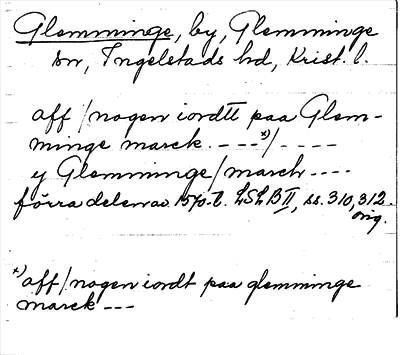 Glemminge, by, Glemminge
sn, Ingelstads hd, Krist. l.
aff / nogen iordtt paa Glem-
minge marck. ---- x)/ ----
y Glemminge / march ----
förra delen av 1570-t. LSLB II, ss. 310, 312.
orig.
x) aff / nogen iordt paa glemminge
marck ---